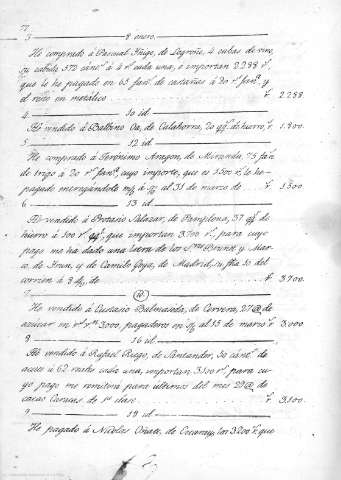 3 — 8 enero
He comprado á Pascual Iñigo, de Logroño, 4 cubas de vino,
su cabida 572 cánts á 4 rs cada una, é importan 2288 rs
que le he pagado en 65 fans de castañas á 20 rs fana y
el resto en metálico r 2288
4 — 10 id
He vendido á Balbino Oa, de Calahorra, 20 qqs de hierro, rs 1.800
5 — 12 id
He comprado á Gerónimo Aragon, de Miranda, 75 fans
de trigo á 20 rs fana, cuyo importe, que es 1500 rs le he
pagado al 31 de marzo de r 1500
6 — 13 id
He vendido á Protasio Salazar, de Pamplona, 37 qqs de
hierro á 100 rs qql, que importan 3700 rs, para cuyo
pago me ha dado una letra de los Sres Brunet y
de Irun, y de Camilo Goya, de Madrid, su fha 10 del
corrien á 3 de r 3700
7
He vendido á Balmaseda, de Cervera, 27 @ de
azucar en rs vn 3000, pagaderos en al 15 de marzo rs 3000
8 — 16 id
He vendido á Rafael Riego, de Santander, 50 cánts de
aceite á 62 cada una, importan 3100 rs, para cu-
yo pago me remitirá para últimos del mes 20 @ de
cacao Caracas de 1a clase r 3100
9 — 19 id
He pagado á Nicolas Oñate, de los 3200 rs que